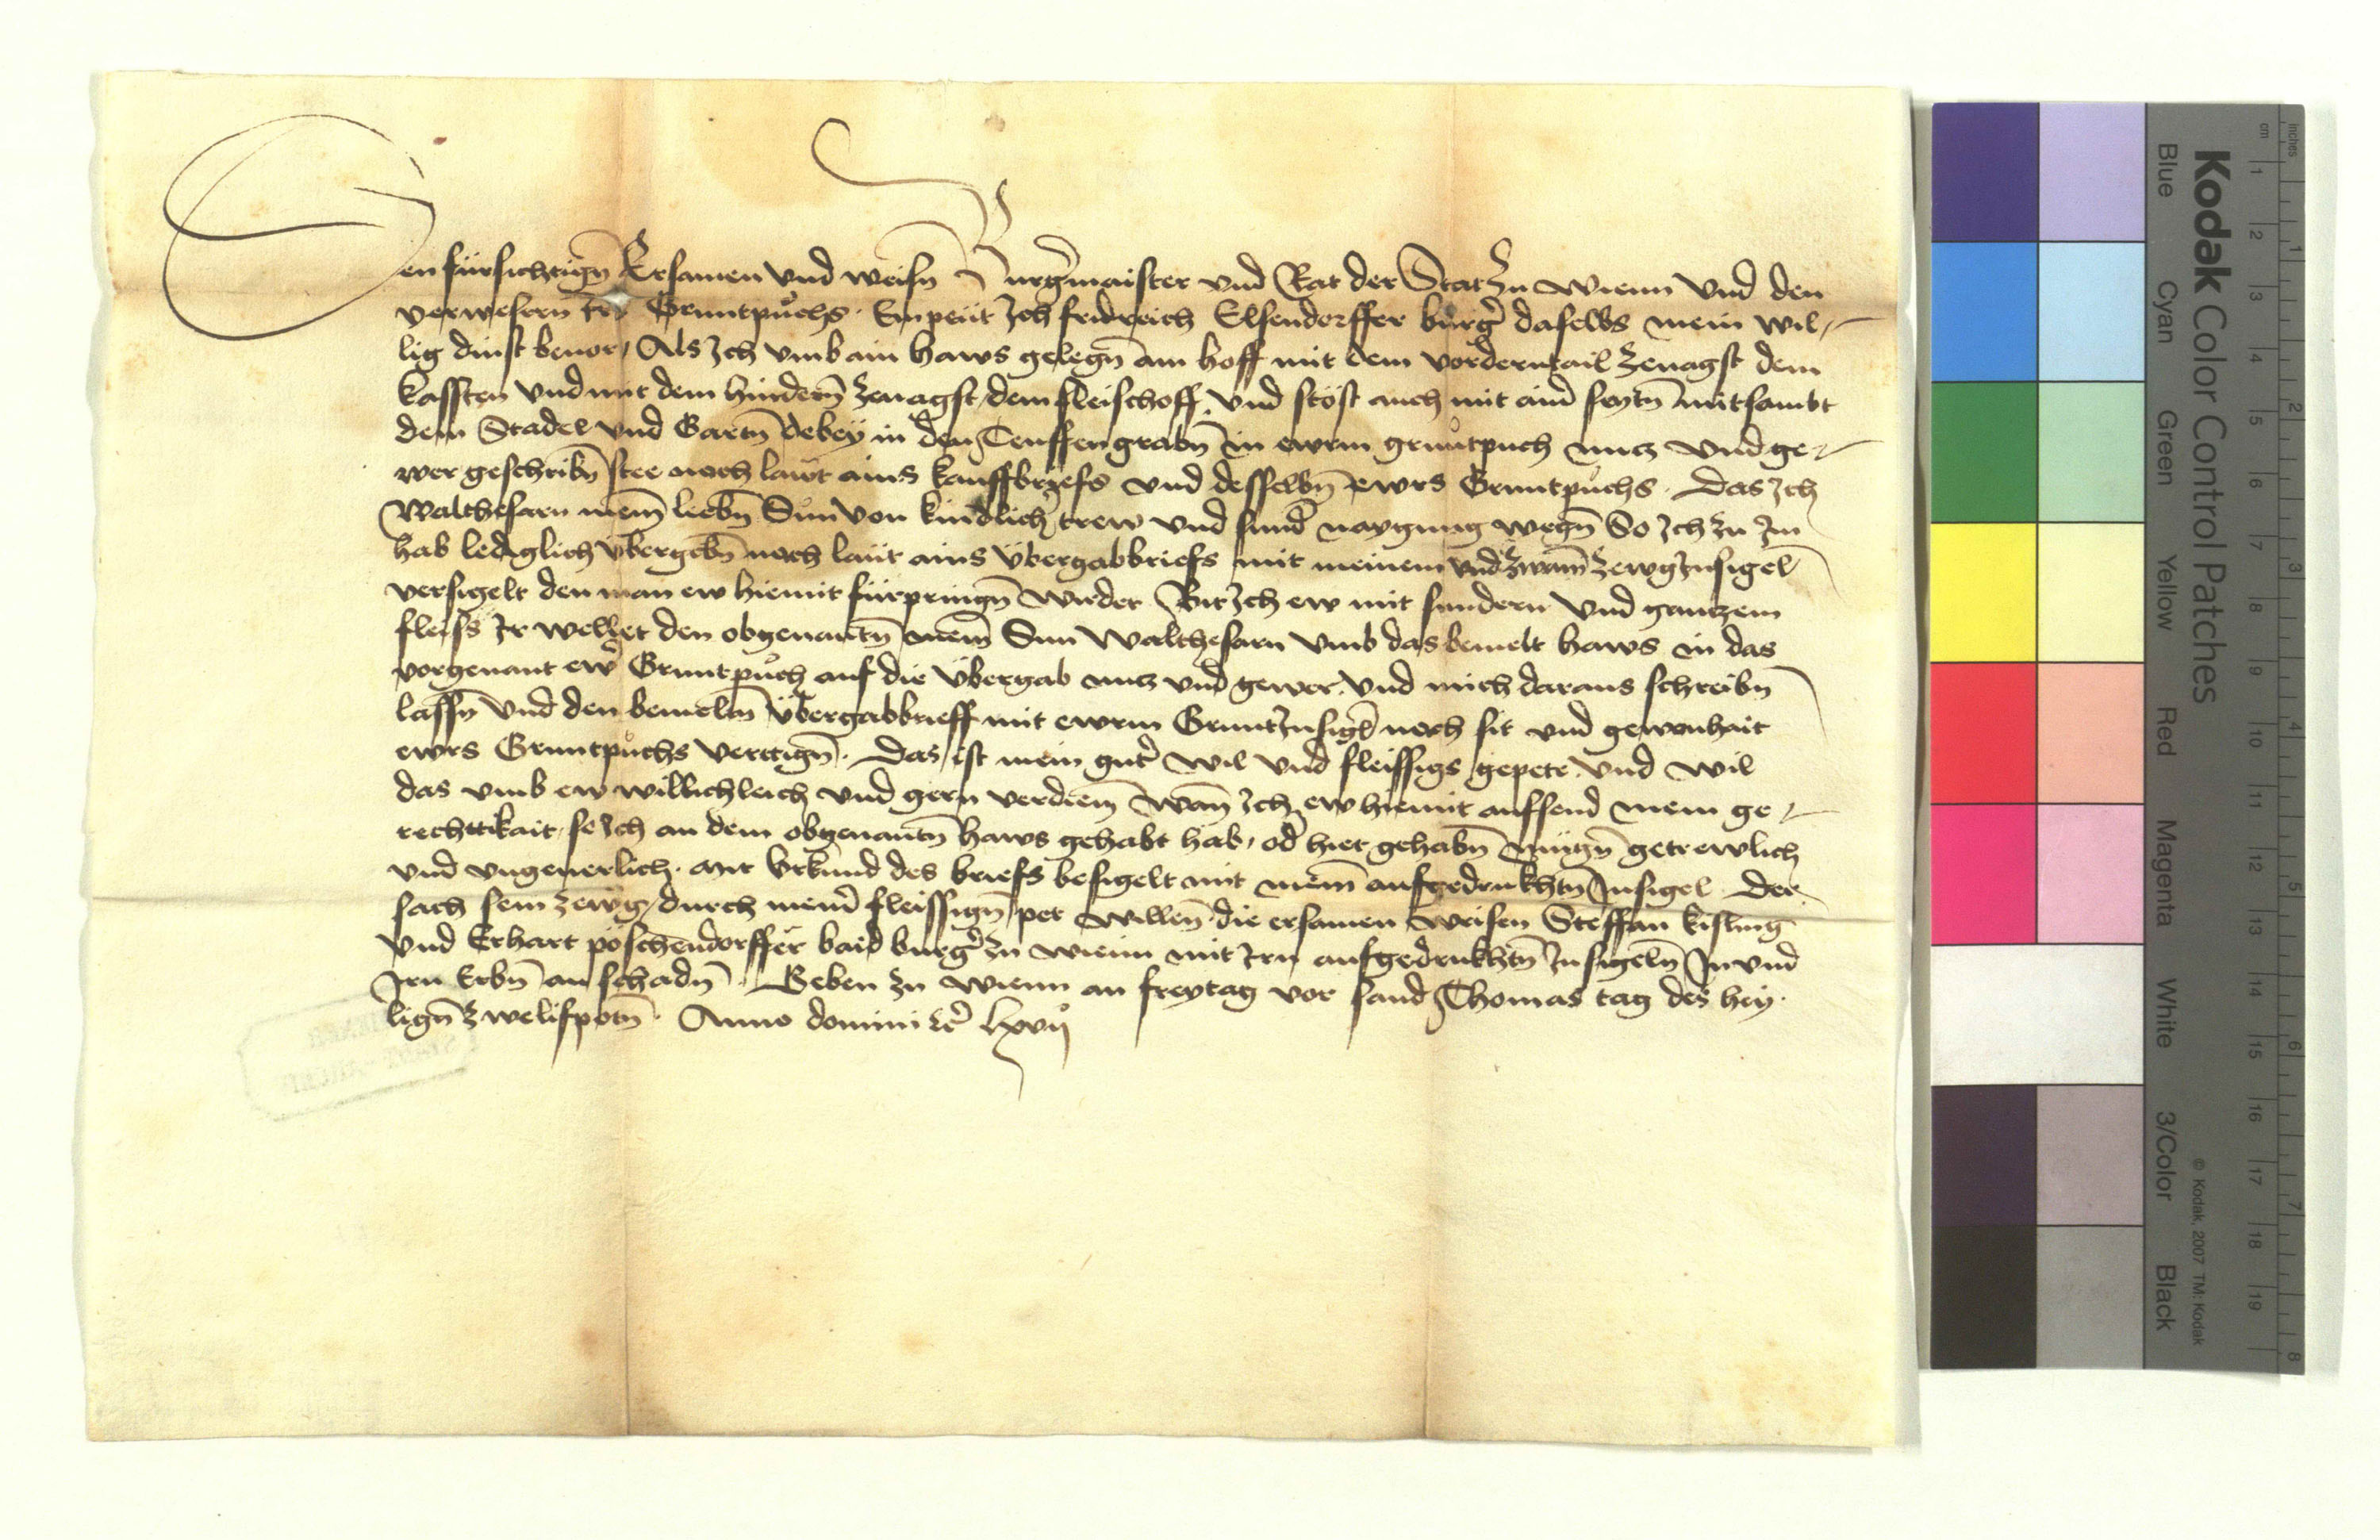 Den fürsichtign̄ Ersamen vnd weisn̄ Burg̾maister vnd Rat der Stat zu Wienn vnd den
verwesern irs Gruntpůchs. Enpeut Ich fridreich Elsendorffer burg̾ daselbs mein wil-
lig dinst beuor, Als Ich vmb ain haws gelegn̄ am hoff mit dem vorderntail zenagst dem
kassten vnd mit dem hindern̄ zenagst dem fleischoff, vnd stost auch mit ain̾ seytn̄ mitsambt
dem Stadel vnd Gartn̄ dabey in den Teuffengrabn̄ in ewrm gruntpuch nucz vnd ge-
wer geschribn̄ stee noch laut ains kauffbriefs vnd desselbn̄ ewrs Gruntpůchs. Das Ich
Walthesarn mein̄ liebn̄ Sun von kindlich̾ trew vnd sund̾ naygung wegn̄ So Ich zu Im
hab lediglich vbergebn̄ noch laut ains vbergabbriefs mit meinem vnd zwain̄ zewg Insigel̄
versigelt den man ew hiemit fürpringn̄ wirdet Bit Ich ew mit sundern vnd ganczem
fleiss Ir wellet den obgenantn̄ mein̄ Sun Walthesarn vmb das bemelt haws in das
vorgenant ew̾ Gruntpůch auf die vbergab nucz vnd gewer. vnd mich daraus schreibn̄
lassn̄ vnd den bemeltn̄ vbergabbrieff mit ewrm Grunt Insigl̄ noch sit vnd gewonhait
ewrs Gruntpůchs vertign̄. Das ist mein gut̾ wil vnd fleissigs gepete. vnd wil
das vmb ew willichleich vnd gern verdien̄ Wan̄ Ich ew hiemit auffsend mein ge-
rechttikait, so Ich an dem obgenantn̄ haws gehabt hab, od̾ hiet gehabn̄ mügn̄ getrewlich
vnd vngeuerlich. Mit vrkund des briefs besigelt mit mein̄ aufgedrukhtn̄ Insigel. Der
sach sein zewg durch mein̾ fleissign̄ pet willen̄. die ersamen weisen Steffan kisling
vnd Erhart pöschendorffer baid burg̾ zu wienn mit Irn aufgedrukhtn̄ Insigeln̄ In vnd
Irn Erbn̄ an schadn̄. Geben zu Wienn an freytag vor sand Thomas tag des hey.
lign̄ zwelifpotn̄. Anno domini &c̾ lxvij°
Kodak Color Control Patches
Blue Cyan Green Yellow Red Magenta White 3/Color Black
© Kodak, 2007 TM: Kodak
cm 1 2 3 4 5 6 7 8 9 10 11 12 13 14 15 16 17 18 19
Inches 1 2 3 4 5 6 7 8